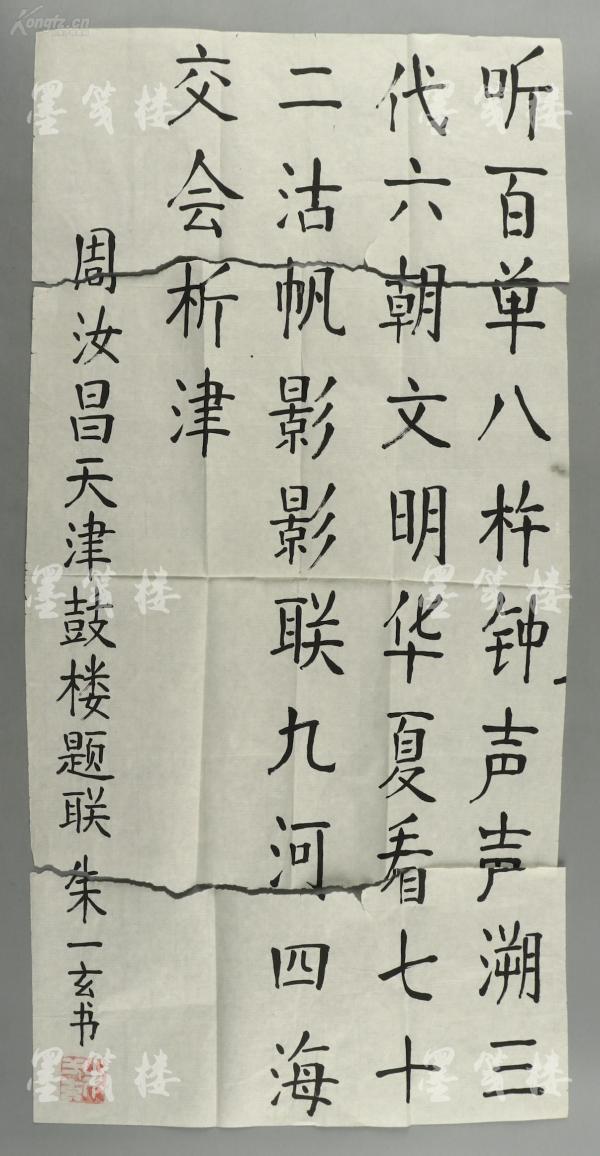 听百单八杵钟声声溯三
代六朝文明华夏看七十
二沽帆影影联九河四海
交会析津
周汝昌天津鼓楼题联 朱一玄书
Kongfz.cn
墨笺楼 墨笺楼
墨笺楼 墨笺楼
墨笺楼 墨笺楼